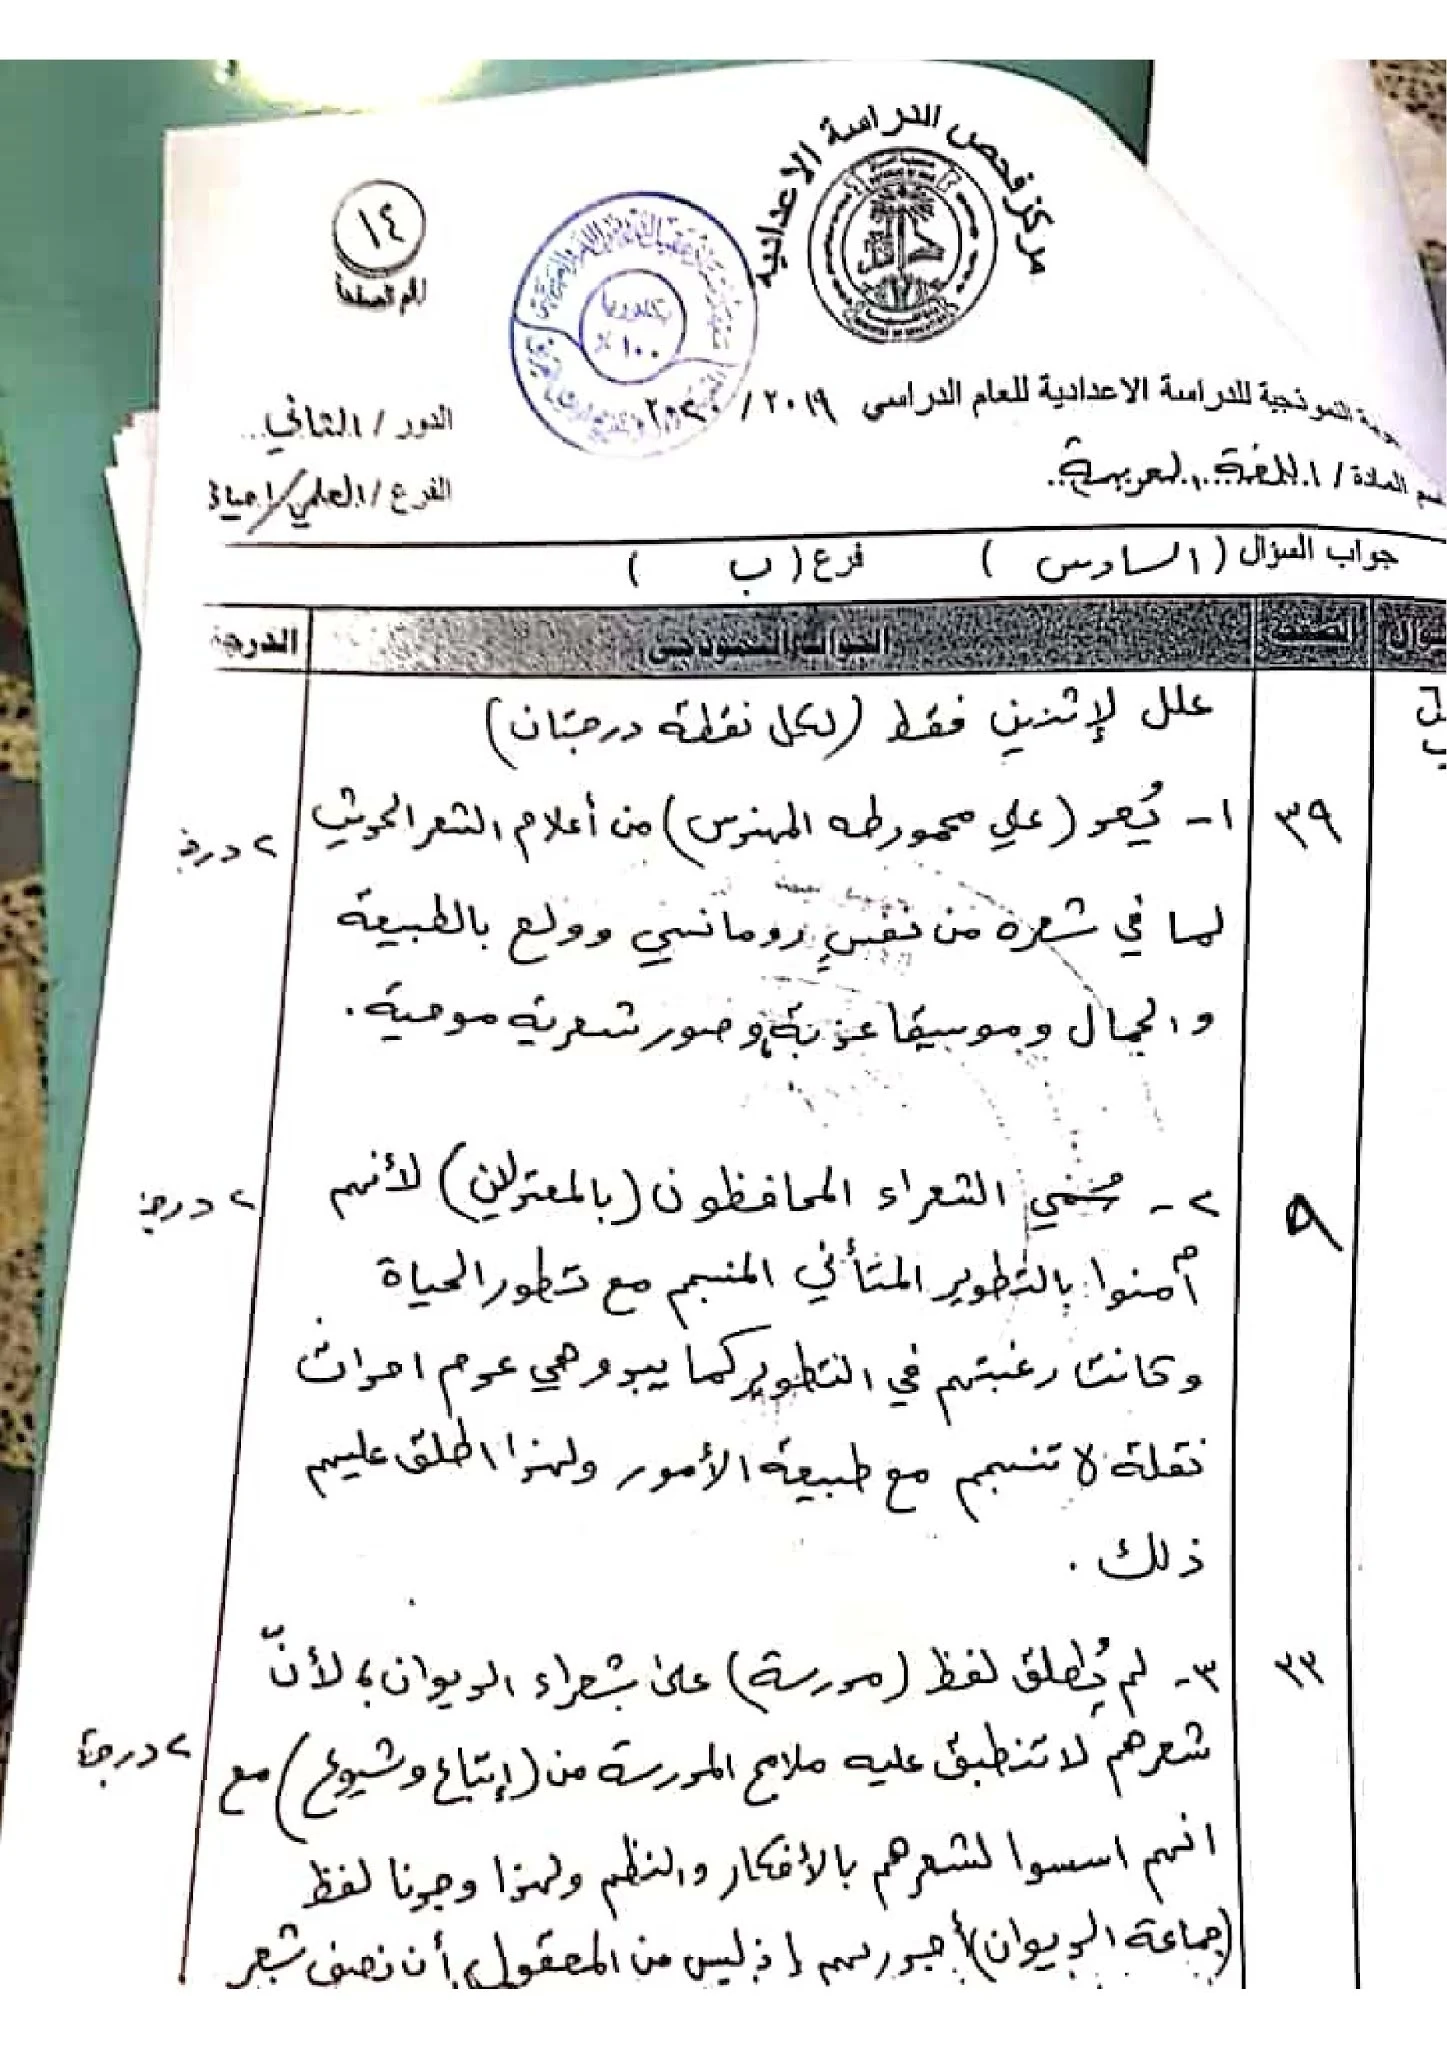 مركز فحص الدراسة الاعدادية
١٤
رقم الصفحة
بكلوريا
١٠٠٪
النموذجية للدراسة الاعدادية للعام الدراسي ٢٠١٩ / ٢٠٢٠
الدور / الثاني
سم المادة / اللغة العربية
الفرع / العلمي / احيائي
جواب السؤال ( السادس ) فرع ( ب )
الصفحة الجواب النموذجي الدرجة
علل لإثنين فقط (لكل نقطة درجتان)
٣٩ ١- يُعد (علي محمود طه المهندس) من أعلام الشعر الحديث ٢ درجة
لما في شعره من نفسٍ رومانسي وولع بالطبيعة
والجمال وموسيقا عذبة وصور شعرية موحية .
٩ ٢- سُمي الشعراء المحافظون (بالمعتدلين) لأنهم ٢ درجة
آمنوا بالتطوير المتأني المنسجم مع تطور الحياة
وكانت رغبتهم في التطوير كما يبدو هي عدم احداث
نقلة لا تنسجم مع طبيعة الأمور ولهذا اطلق عليهم
ذلك .
٢٢ ٣- لم يُطلق لفظ (مدرسة) على شعراء الديوان، لأنّ
شعرهم لا تنطبق عليه ملامح المدرسة من (إتباع وشيوع) مع ٢ درجة
انهم اسسوا لشعرهم بالأفكار والنظم ولهذا وجدنا لفظ
(جماعة الديوان) أجدر بهم إذ ليس من المعقول أن نصف شعر